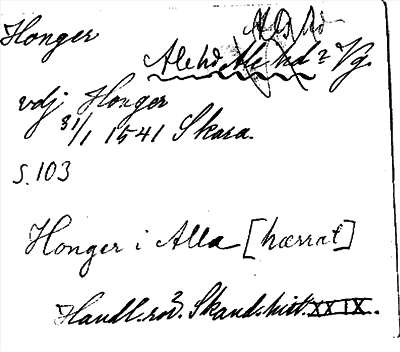 Honger
Ale hd
Alehd. Ale hd ? Vg.
vdj Honger
31/1 1541 Skara.
s. 103
Honger i Alla [hærrat]
Handl. rör. Skand. hist. XXIX.